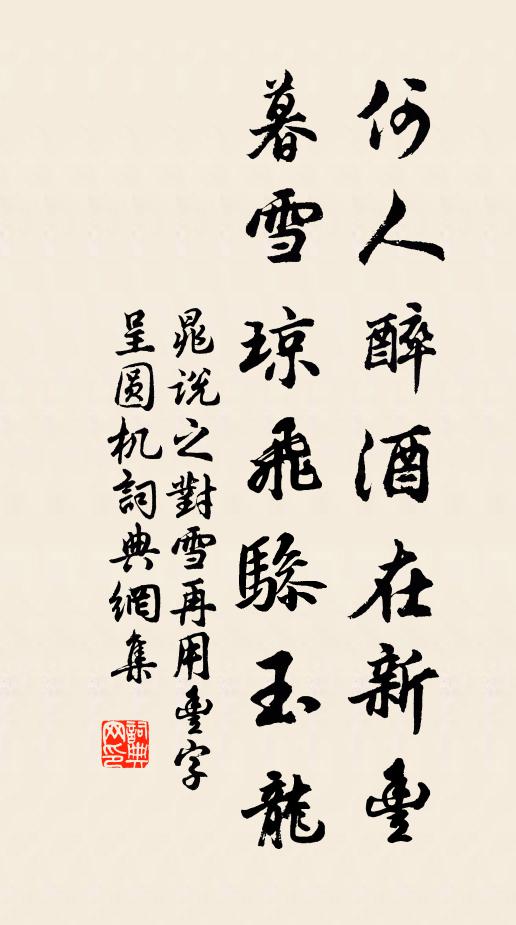 何人醉酒在新豐
暮雪琼飛驂玉龍
晁说之對雪再用豊字
呈圆机詞典網集
詞典网印